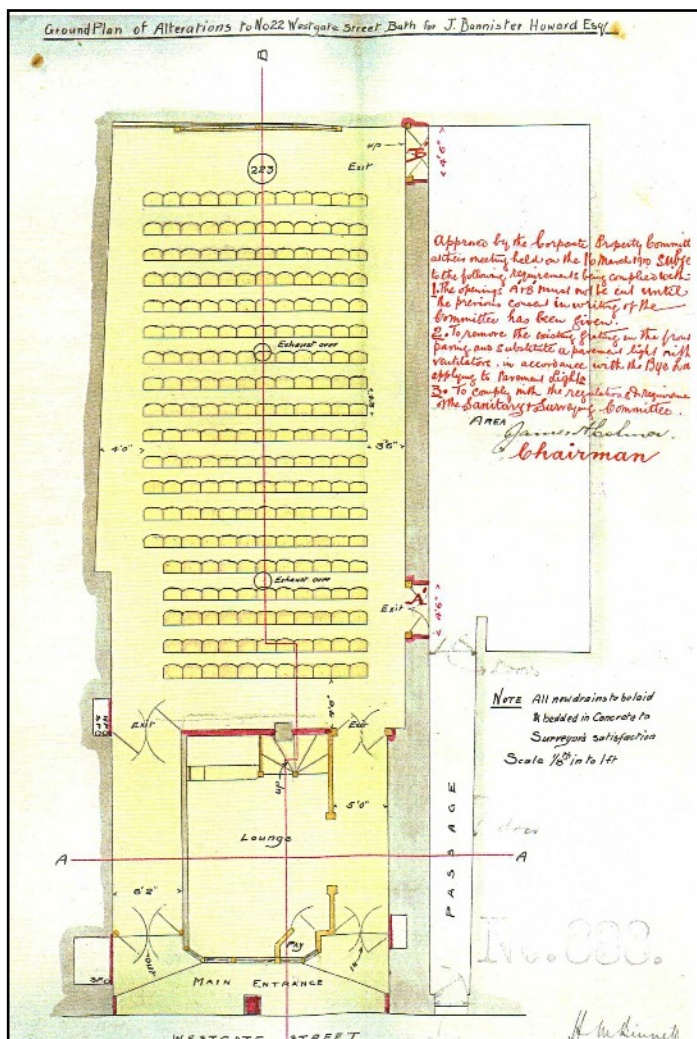 Ground Plan of Alterations to No 22 Westgate Street Bath for J. Bannister Howard Esq
B
223
Exit
UP
B
4'6"
Approved by the Corporate Property Committ
at their meeting held on the 16 March 1910 Subje
to the following requirements being complied with
1. The openings A & B must not be cut until
the previous consent in writing of the
Committee has been given.
2. To remove the existing grating in the front
paving and substitute a pavement light with
ventilators in accordance with the Bye La
applying to Pavement Lights
3. To comply with the regulations & requireme
of the Sanitary & Surveying Committee.
AREA
Chairman
Exhaust over
4'0"
3'6"
Exhaust over
A
Exit
4'6"
doors
NOTE All new drains to be laid
& bedded in Concrete to
Surveyors satisfaction
Scale 1/8th in to 1 ft
Exit
Exit
UP
5'0"
Lounge
door
PASSAGE
A
A
6'2"
OUT
PAY
IN
MAIN ENTRANCE
WESTGATE STREET